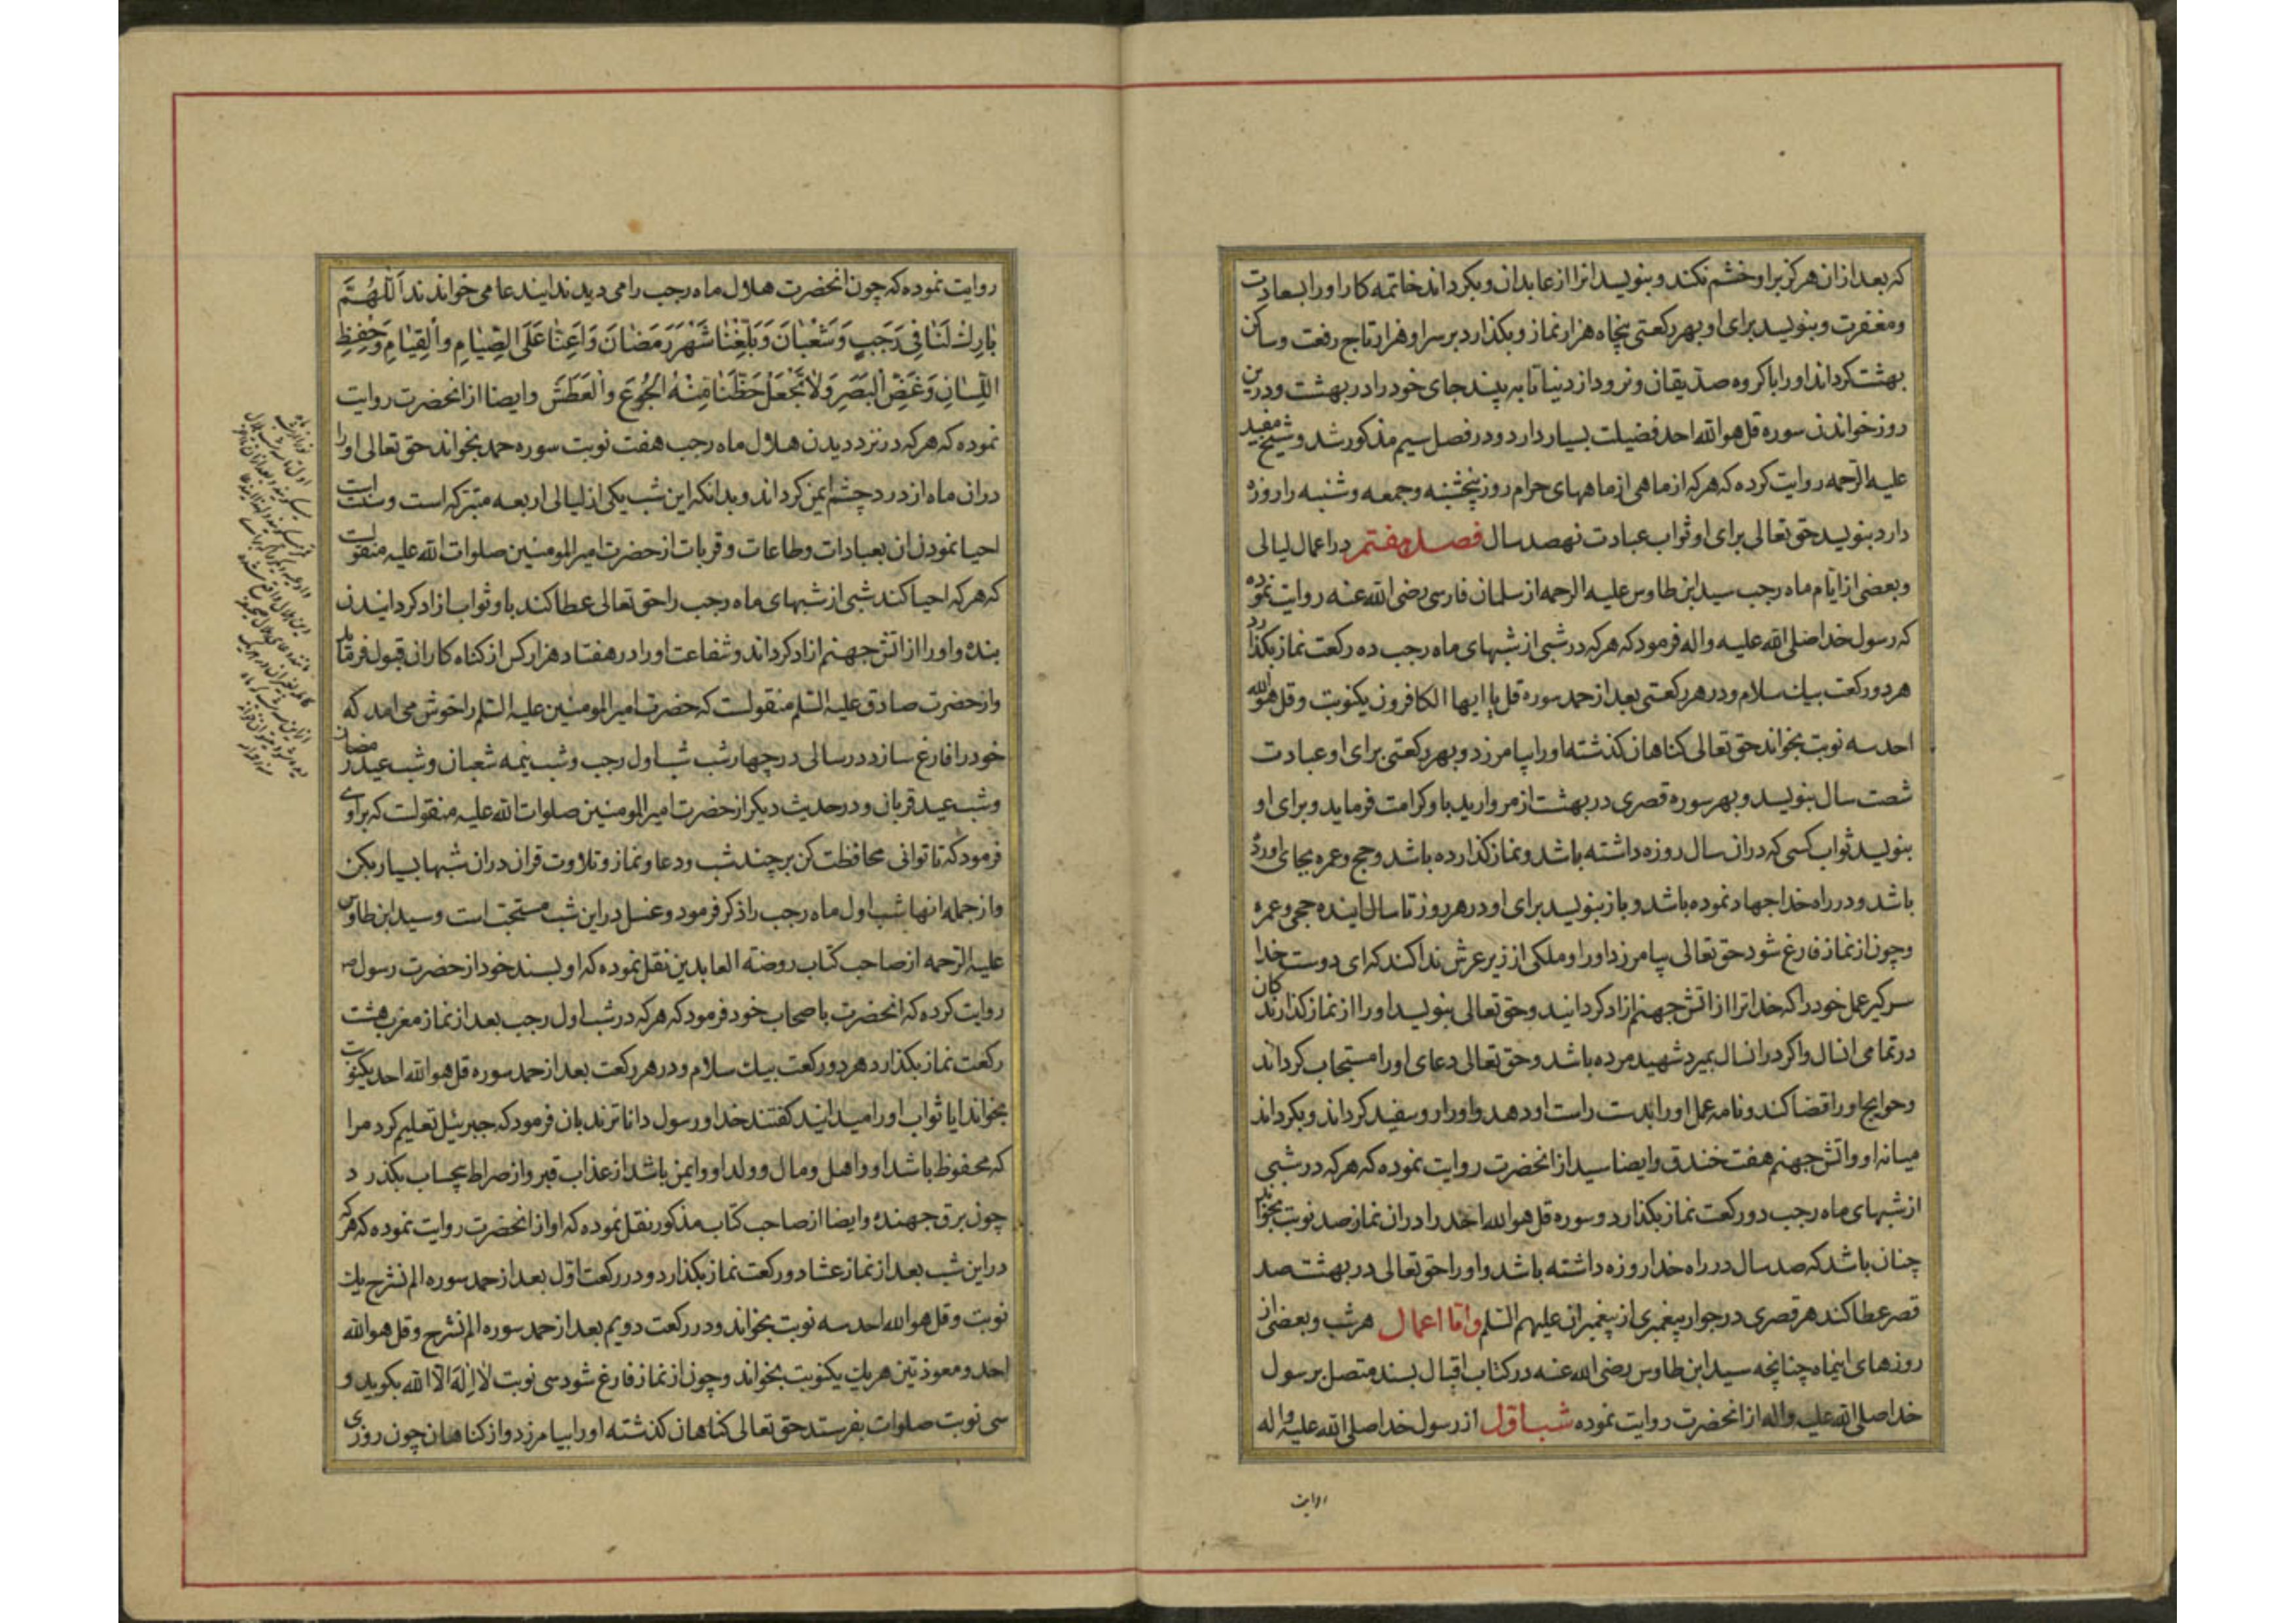 که بعد ازان هرکز براو خشم نکند و بنویسد انرا از عابدان و بکرداند خاتمه کار اورا بسعادت
ومغفرت و بنویسد برای او بهر رکعتی پنجاه هزار نماز و بکذارد بر سر او هزار تاج رفعت و ساکن
بهشت کرداند اورا باکروه صدیقان و نرود از دنیا تا به بیند جای خود را در بهشت و درین
روز خواندن سوره قل هو الله احد فضیلت بسیار دارد و در فصل سیم مذکور شد و شیخ مفید
علیه الرحمه روایت کرده که هرکه از ماهی از ماههای حرام روز پنجشنبه و جمعه و شنبه را روزه
دارد بنویسد حق تعالی برای او ثواب عبادت نهصد سال فصل هفتم در اعمال لیالی
و بعضی از ایام ماه رجب سید ابن طاوس علیه الرحمه از سلمان فارسی رضی الله عنه روایت نموده
که رسول خدا صلی الله علیه واله فرمود که هرکه در شبی از شبهای ماه رجب ده رکعت نماز بکذارد
هر دو رکعت بیک سلام و در هر رکعتی بعد از حمد سوره قل یا ایها الکافرون یکنوبت و قل هو الله
احد سه نوبت بخواند حق تعالی کناهان کذشته اورا بیامرزد و بهر رکعتی برای او عبادت
شصت سال بنویسد و بهر سوره قصری در بهشت از مروارید باو کرامت فرماید و برای او
بنویسد ثواب کسی که دران سال روزه داشته باشد و نماز کذارده باشد و حج و عمره بجای اورده
باشد و در راه خدا جهاد نموده باشد و باز بنویسد برای او در هر روز تا سال اینده حجی و عمره
و چون از نماز فارغ شود حق تعالی بیامرزد اورا و ملکی از زیر عرش ندا کند که ای دوست خدا
سرکیر عمل خود را که خدا ترا از اتش جهنم ازاد کردانید و حق تعالی بنویسد اورا از نماز کذارندکان
در تمامی انسال و اکر در انسال بمیرد شهید مرده باشد و حق تعالی دعای اورا مستجاب کرداند
و حوایج اورا قضا کند و نامه عمل اورا بدست راست او دهد و اورا رو سفید کرداند و بکرداند
میانه او و اتش جهنم هفت خندق و ایضا سید از انحضرت روایت نموده که هرکه در شبی
از شبهای ماه رجب دو رکعت نماز بکذارد و سوره قل هو الله احد را دران نماز صد نوبت بخواند
چنان باشد که صد سال در راه خدا روزه داشته باشد و اورا حق تعالی در بهشت صد
قصر عطا کند هر قصری در جوار پیغمبری از پیغمبران علیهم السلم و اما اعمال هر شب و بعضی از
روزهای اینماه چنانچه سید ابن طاوس رضی الله عنه در کتاب اقبال بسند متصل بر سول
خدا صلی الله علیه واله از انحضرت روایت نموده شب اول از رسول خدا صلی الله علیه واله
روایت
روایت نموده که چون انحضرت هلال ماه رجب را می دیدند ایندعا می خواندند اَللّٰهُمَّ
بٰارِكْ لَنٰا فِی رَجَبٍ وَشَعْبٰانَ وَبَلِّغْنٰا شَهْرَ رَمَضٰانَ وَاَعِنّٰا عَلَی الصِّیٰامِ وَالْقِیٰامِ وَحِفْظِ
اللِّسٰانِ وَغَضِّ الْبَصَرِ وَلٰا تَجْعَلْ حَظَّنٰا مِنْهُ الْجُوعَ وَالْعَطَشَ و ایضا از انحضرت روایت
نموده که هرکه در نزد دیدن هلال ماه رجب هفت نوبت سوره حمد بخواند حق تعالی اورا
دران ماه از درد چشم ایمن کرداند و بدانکه این شب یکی از لیالی اربعه متبرکه است و سنت است
احیا نمودن ان بعبادات و طاعات و قربات از حضرت امیرالمومنین صلوات الله علیه منقولست
که هرکه احیا کند شبی از شبهای ماه رجب را حق تعالی عطا کند باو ثواب ازاد کردانیدن
بنده و اورا از اتش جهنم ازاد کرداند و شفاعت اورا در هفتاد هزار کس از کناه کاران قبول فرماید
و از حضرت صادق علیه السلم منقولست که حضرت امیر المومنین علیه السلم را خوش می امد که
خود را فارغ سازد در سالی در چهار شب شب اول رجب و شب نیمه شعبان و شب عید رمضان
و شب عید قربان و در حدیث دیکر از حضرت امیر المومنین صلوات الله علیه منقولست که براوی
فرمود که تا توانی محافظت کن بر چند شب و دعا و نماز و تلاوت قران دران شبها بسیار بکن
و از جمله انها شب اول ماه رجب را ذکر فرمود و غسل در این شب مستحبّ است و سید ابن طاوس
علیه الرحمه از صاحب کتاب روضة العابدین نقل نموده که او بسند خود از حضرت رسول ص
روایت کرده که انحضرت باصحاب خود فرمود که هرکه در شب اول رجب بعد از نماز مغرب هشت
رکعت نماز بکذارد هر دو رکعت بیک سلام و در هر رکعت بعد از حمد سوره قل هو الله احد یکنوبت
بخواند ایا ثواب اورا میدانید کفتند خدا و رسول داناترند بان فرمود که جبرئیل تعلیم کرد مرا
که محفوظ باشد او و اهل و مال و ولد او و ایمن باشد از عذاب قبر و از صراط بیحساب بکذرد
چون برق جهنده و ایضا از صاحب کتاب مذکور نقل نموده که او از انحضرت روایت نموده که هرکه
در این شب بعد از نماز عشا دو رکعت نماز بکذارد و در رکعت اول بعد از حمد سوره الم نشرح یک
نوبت و قل هو الله احد سه نوبت بخواند و در رکعت دویم بعد از حمد سوره الم نشرح و قل هو الله
احد و معوذتین هر یک یکنوبت بخواند و چون از نماز فارغ شود سی نوبت لٰا اِلٰهَ اِلَّا الله بکوید و
سی نوبت صلوات بفرستد حق تعالی کناهان کذشته اورا بیامرزد و از کناهان چون روزی